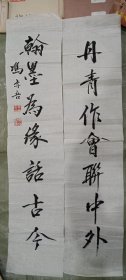 丹青作會聯中外
翰墨為緣話古今